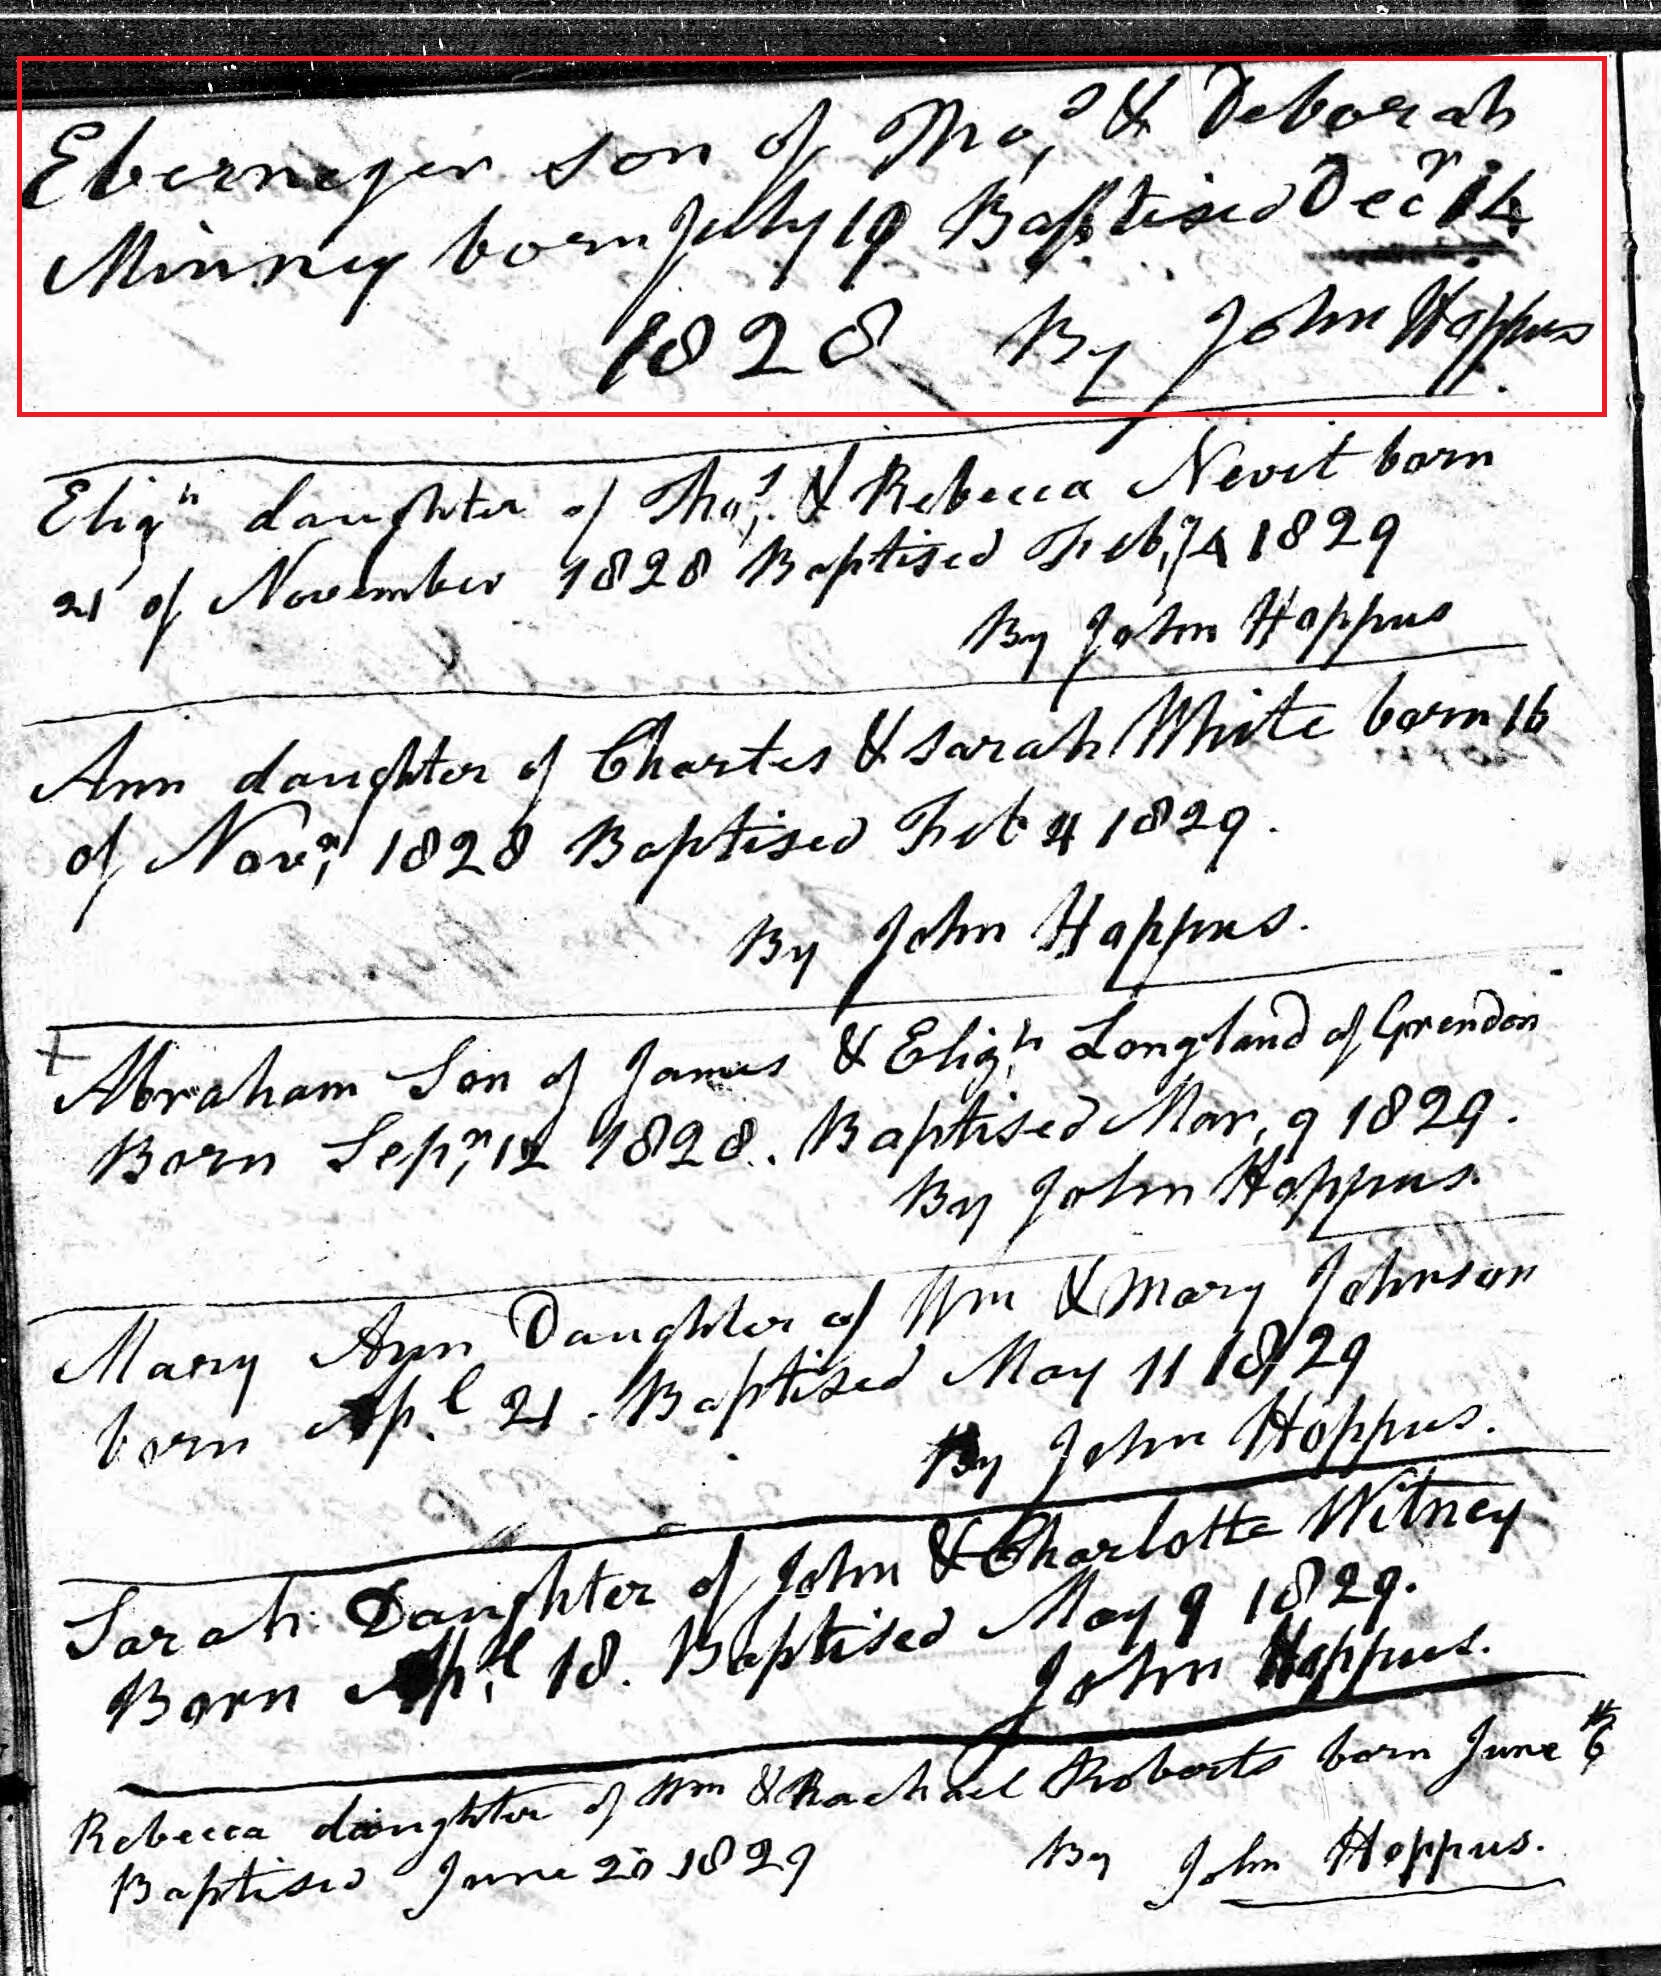 Ebernezer son of Thos, & Deborah
Minney born July 19 Baptised Decr 14
1828 By John Hoppus
Elizh daughter of Thos, & Rebecca Nevit born
21 of November 1828 Baptised Feb,y 4 1829
By John Hoppus
Ann daughter of Charles & Sarah White born 16
of Novr, 1828 Baptised Feb 4 1829.
By John Hoppus.
+ Abraham Son of James & Elizh, Longland of Grendon
Born Sepr, 12 1828. Baptised Mar, 9 1829.
By John Hoppus.
Mary Ann Daughter of Wm & Mary Johnson
born Apl. 21. Baptised May 11 1829
By John Hoppus.
Sarah Daughter of John & Charlotte Witney
Born Apl, 18. Baptised May 9 1829.
John Hoppus.
Rebecca daughter of Wm & Rachael Roberts born June 6
Baptised June 20 1829 By John Hoppus.